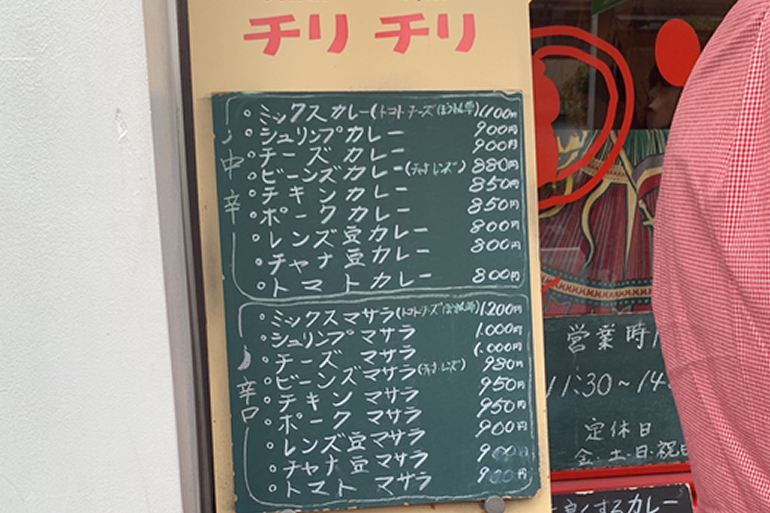 チリチリ
中辛
ミックスカレー(トマトチーズほうれん草)1,100円
シュリンプカレー 900円
チーズカレー 900円
ビーンズカレー(チャナ レンズ) 880円
チキンカレー 850円
ポークカレー 850円
レンズ豆カレー 800円
チャナ豆カレー 800円
トマトカレー 800円
辛口
ミックスマサラ(トマトチーズほうれん草)1200円
シュリンプマサラ 1,000円
チーズマサラ 1,000円
ビーンズマサラ(チャナ レンズ) 980円
チキンマサラ 950円
ポークマサラ 950円
レンズ豆マサラ 900円
チャナ豆マサラ 900円
トマトマサラ 900円
営業時
11:30~14
定休日
金・土・日・祝
するカレー